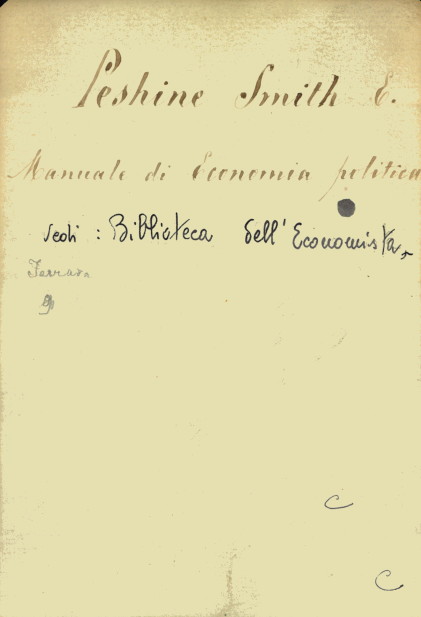 Peshine Smith E.
Manuale di Economia politica
vedi: Biblioteca dell'Economista,
Ferrara
C
C